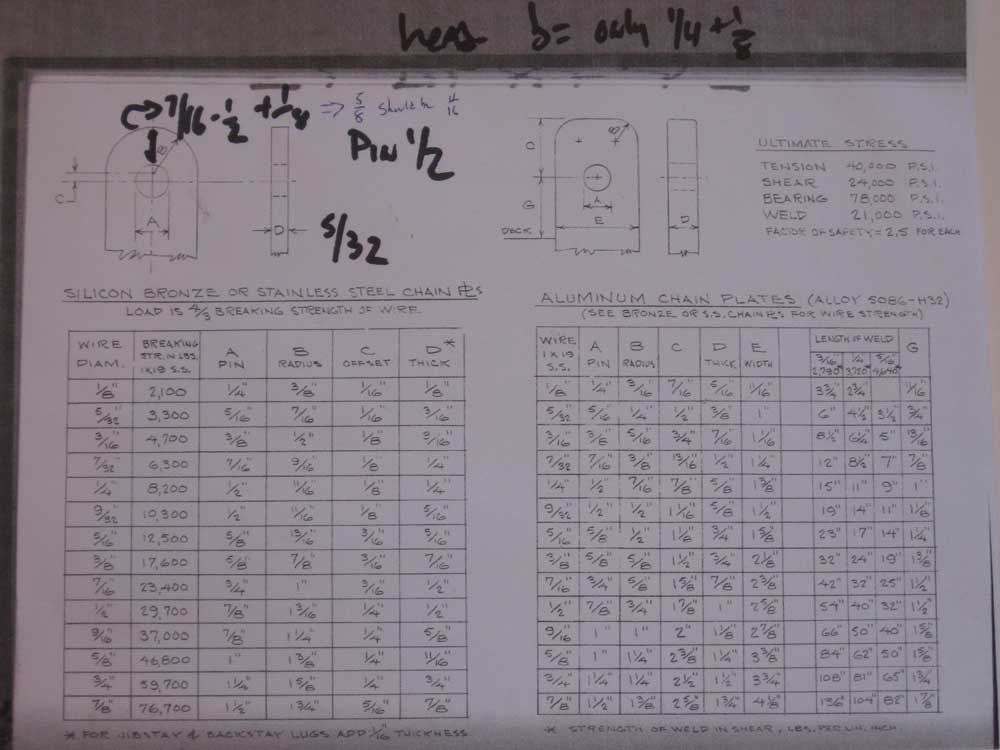 b = only 1/4 + 1/8
7/16 - 1/2 + 1/8 => 5/8 should be
Pin 1/2
5/32
B
C
A
D
D
B
G
A
E
D
DECK
ULTIMATE STRESS
TENSION 40,000 P.S.I.
SHEAR 24,000 P.S.I.
BEARING 78,000 P.S.I.
WELD 21,000 P.S.I.
FACTOR OF SAFETY = 2.5 FOR EACH
SILICON BRONZE OR STAINLESS STEEL CHAIN PLS
LOAD IS 4/3 BREAKING STRENGTH OF WIRE.
WIRE DIAM. BREAKING STR. IN LBS. 1X19 S.S. A PIN B RADIUS C OFFSET D* THICK
1/8" 2,100 1/4" 3/8" 1/16" 1/8"
5/32" 3,300 5/16" 7/16" 1/16" 3/16"
3/16" 4,700 3/8" 1/2" 1/8" 3/16"
7/32" 6,300 7/16" 9/16" 1/8" 1/4"
1/4" 8,200 1/2" 11/16" 1/8" 1/4"
9/32" 10,300 1/2" 11/16" 1/8" 5/16"
5/16" 12,500 5/8" 13/16" 3/16" 5/16"
3/8" 17,600 5/8" 7/8" 3/16" 7/16"
7/16" 23,400 3/4" 1" 3/16" 1/2"
1/2" 29,700 7/8" 1 3/16" 1/4" 1/2"
9/16" 37,000 7/8" 1 1/4" 1/4" 5/8"
5/8" 46,800 1" 1 3/8" 1/4" 11/16"
3/4" 59,700 1 1/4" 1 5/8" 1/4" 3/4"
7/8" 76,700 1 1/2" 1 3/4" 5/16" 7/8"
* FOR JIBSTAY & BACKSTAY LUGS ADD 1/16" THICKNESS
ALUMINUM CHAIN PLATES (ALLOY 5086-H32)
(SEE BRONZE OR S.S. CHAIN PLS FOR WIRE STRENGTH)
WIRE 1X19 S.S. A PIN B RADIUS C D THICK E WIDTH LENGTH OF WELD 3/16" 2,790* 1/4" 3,720* 5/16" 4,640* G
1/8" 1/4" 3/16" 7/16" 5/16" 11/16" 3 3/4" 2 3/4" 11/16"
5/32" 5/16" 1/4" 1/2" 3/8" 1" 6" 4 1/2" 3 1/2" 3/4"
3/16" 3/8" 5/16" 3/4" 7/16" 1 1/16" 8 1/2" 6 1/4" 5" 13/16"
7/32" 7/16" 3/8" 13/16" 1/2" 1 1/4" 12" 8 1/2" 7" 7/8"
1/4" 1/2" 7/16" 7/8" 5/8" 1 3/8" 15" 11" 9" 1"
9/32" 1/2" 1/2" 1 1/16" 5/8" 1 1/2" 19" 14" 11" 1 1/8"
5/16" 5/8" 1/2" 1 1/8" 3/4" 1 5/8" 23" 17" 14" 1 1/4"
3/8" 5/8" 5/8" 1 1/2" 3/4" 2 1/8" 32" 24" 19" 1 3/8"
7/16" 3/4" 5/8" 1 5/8" 7/8" 2 3/8" 42" 32" 25" 1 1/2"
1/2" 7/8" 3/4" 1 7/8" 1" 2 5/8" 54" 40" 32" 1 1/2"
9/16" 1" 1" 2" 1 1/8" 2 7/8" 66" 50" 40" 1 5/8"
5/8" 1" 1 1/4" 2 3/8" 1 1/4" 3 3/8" 84" 62" 50" 1 5/8"
3/4" 1 1/4" 1 1/4" 2 1/2" 1 1/2" 3 3/4" 108" 81" 65" 1 3/4"
7/8" 1 1/2" 1 3/8" 2 5/8" 1 3/4" 4 1/8" 136" 104" 82" 1 7/8"
* STRENGTH OF WELD IN SHEAR, LBS. PER LIN. INCH